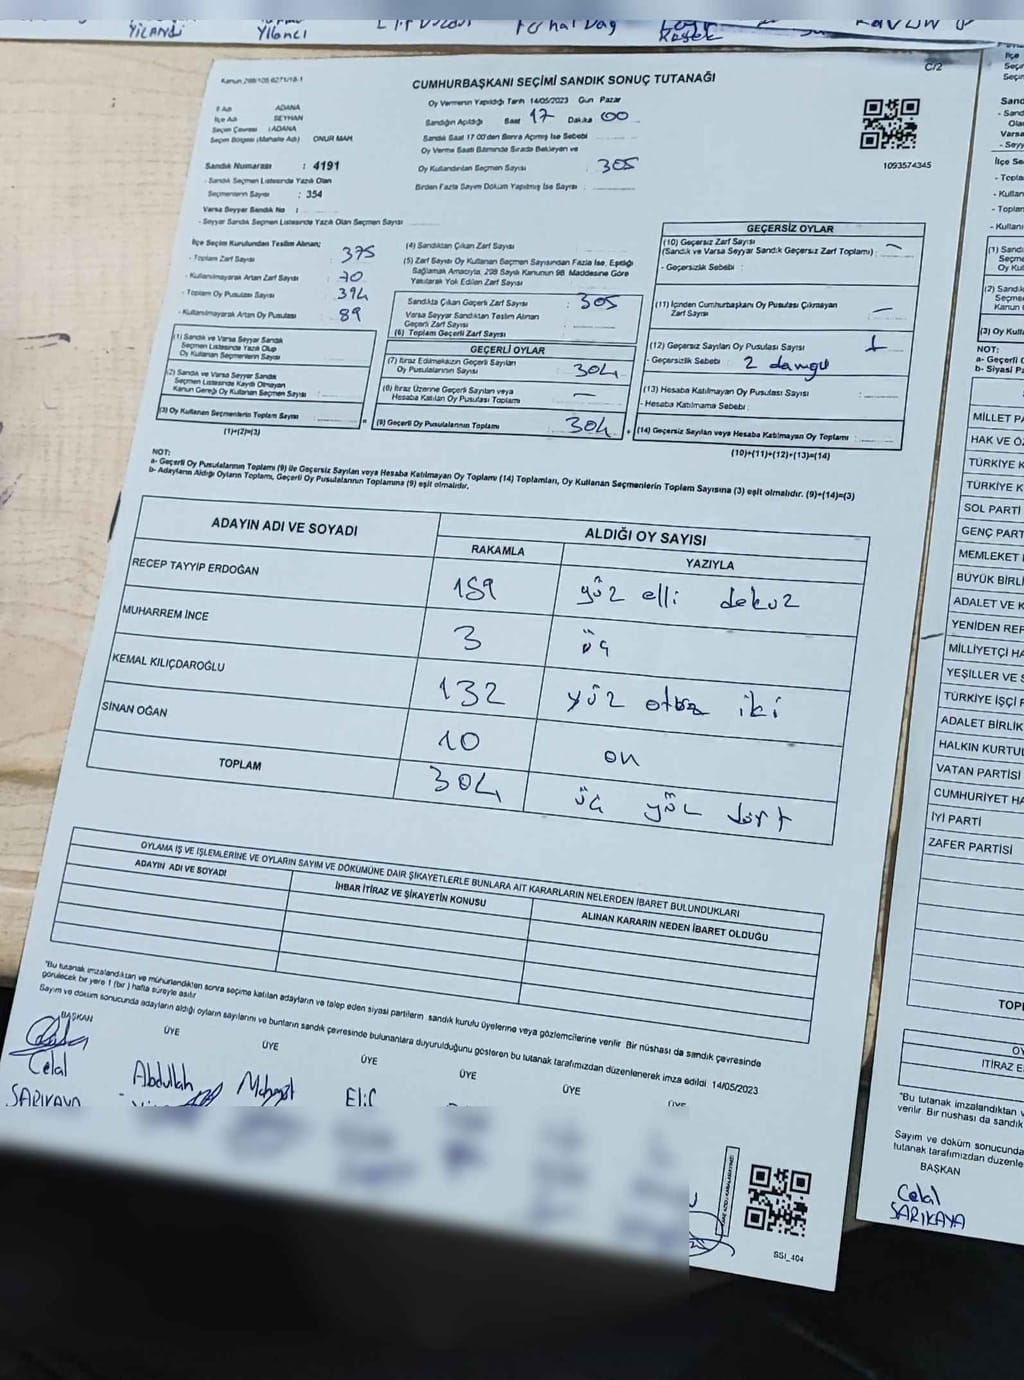 YİLANCİ
Yılancı
Ferhat Dağ
C/2
Kanun 298/105 6271/18-1
CUMHURBAŞKANI SEÇİMİ SANDIK SONUÇ TUTANAĞI
İl Adı ADANA
İlçe Adı SEYHAN
Seçim Çevresi : ADANA
Seçim Bölgesi (Mahalle Adı) ONUR MAH.
Oy Vermenin Yapıldığı Tarih 14/05/2023 Gün Pazar
Sandığın Açıldığı Saat 17 Dakika 00
Sandık Saat 17 00'den Sonra Açılmış İse Sebebi
Oy Verme Saati Bitiminde Sırada Bekleyen ve
Oy Kullandırılan Seçmen Sayısı : 305
Birden Fazla Sayım Döküm Yapılmış İse Sayısı :
1093574345
Sandık Numarası : 4191
- Sandık Seçmen Listesinde Yazılı Olan
Seçmenlerin Sayısı : 354
Varsa Seyyar Sandık No :
- Seyyar Sandık Seçmen Listesinde Yazılı Olan Seçmen Sayısı
İlçe Seçim Kurulundan Teslim Alınan;
- Toplam Zarf Sayısı : 375
- Kullanılmayarak Artan Zarf Sayısı : 70
- Toplam Oy Pusulası Sayısı : 394
- Kullanılmayarak Artan Oy Pusulası : 89
(1) Sandık ve Varsa Seyyar Sandık
Seçmen Listesinde Yazılı Olup
Oy Kullanan Seçmenlerin Sayısı
(2) Sandık ve Varsa Seyyar Sandık
Seçmen Listesinde Kaydı Olmayan
Kanun Gereği Oy Kullanan Seçmen Sayısı
(3) Oy Kullanan Seçmenlerin Toplam Sayısı
(1)+(2)=(3)
(4) Sandıktan Çıkan Zarf Sayısı
(5) Zarf Sayısı Oy Kullanan Seçmen Sayısından Fazla İse, Eşitliği
Sağlamak Amacıyla, 298 Sayılı Kanunun 98. Maddesine Göre
Yakılarak Yok Edilen Zarf Sayısı
Sandıkta Çıkan Geçerli Zarf Sayısı : 305
Varsa Seyyar Sandıktan Teslim Alınan
Geçerli Zarf Sayısı
(6) Toplam Geçerli Zarf Sayısı
GEÇERLİ OYLAR
(7) İtiraz Edilmeksizin Geçerli Sayılan
Oy Pusulalarının Sayısı : 304
(8) İtiraz Üzerine Geçerli Sayılan veya
Hesaba Katılan Oy Pusulası Toplamı : —
(9) Geçerli Oy Pusulalarının Toplamı : 304
GEÇERSİZ OYLAR
(10) Geçersiz Zarf Sayısı
(Sandık ve Varsa Seyyar Sandık Geçersiz Zarf Toplamı) : —
- Geçersizlik Sebebi :
(11) İçinden Cumhurbaşkanı Oy Pusulası Çıkmayan
Zarf Sayısı : —
(12) Geçersiz Sayılan Oy Pusulası Sayısı : 1
- Geçersizlik Sebebi : 2 damga
(13) Hesaba Katılmayan Oy Pusulası Sayısı :
- Hesaba Katılmama Sebebi :
(14) Geçersiz Sayılan veya Hesaba Katılmayan Oy Toplamı :
(10)+(11)+(12)+(13)=(14)
NOT:
a- Geçerli Oy Pusulalarının Toplamı (9) ile Geçersiz Sayılan veya Hesaba Katılmayan Oy Toplamı (14) Toplamları, Oy Kullanan Seçmenlerin Toplam Sayısına (3) eşit olmalıdır. (9)+(14)=(3)
b- Adayların Aldığı Oyların Toplamı, Geçerli Oy Pusulalarının Toplamına (9) eşit olmalıdır.
ADAYIN ADI VE SOYADI
ALDIĞI OY SAYISI
RAKAMLA YAZIYLA
RECEP TAYYİP ERDOĞAN 159 yüz elli dokuz
MUHARREM İNCE 3 üç
KEMAL KILIÇDAROĞLU 132 yüz otuz iki
SİNAN OĞAN 10 on
TOPLAM 304 üç yüz dört
OYLAMA İŞ VE İŞLEMLERİNE VE OYLARIN SAYIM VE DÖKÜMÜNE DAİR ŞİKAYETLERLE BUNLARA AİT KARARLARIN NELERDEN İBARET BULUNDUKLARI
ADAYIN ADI VE SOYADI
İHBAR İTİRAZ VE ŞİKAYETİN KONUSU
ALINAN KARARIN NEDEN İBARET OLDUĞU
"Bu tutanak imzalandıktan ve mühürlendikten sonra seçime katılan adayların ve talep eden siyasi partilerin sandık kurulu üyelerine veya gözlemcilerine verilir Bir nüshası da sandık çevresinde
görülecek bir yere 1 (bir) hafta süreyle asılır
Sayım ve döküm sonucunda adayların aldığı oyların sayılarını ve bunların sandık çevresinde bulunanlara duyurulduğunu gösteren bu tutanak tarafımızdan düzenlenerek imza edildi 14/05/2023
BAŞKAN ÜYE ÜYE ÜYE ÜYE ÜYE ÜYE
Celal
SARIKAYA
Abdullah
Elif
SSI_404
MİLLET PA
HAK VE Ö
TÜRKİYE K
TÜRKİYE K
SOL PARTİ
GENÇ PART
MEMLEKET
BÜYÜK BİRL
ADALET VE K
YENİDEN REF
MİLLİYETÇİ HA
YEŞİLLER VE S
TÜRKİYE İŞÇİ P
ADALET BİRLİK
HALKIN KURTUL
VATAN PARTİSİ
CUMHURİYET HA
İYİ PARTİ
ZAFER PARTİSİ
TOPL
OY
İTİRAZ E
"Bu tutanak imzalandıktan v
verilir Bir nüshası da sandık
Sayım ve döküm sonucunda
tutanak tarafımızdan düzenle
BAŞKAN
Celal
SARIKAYA